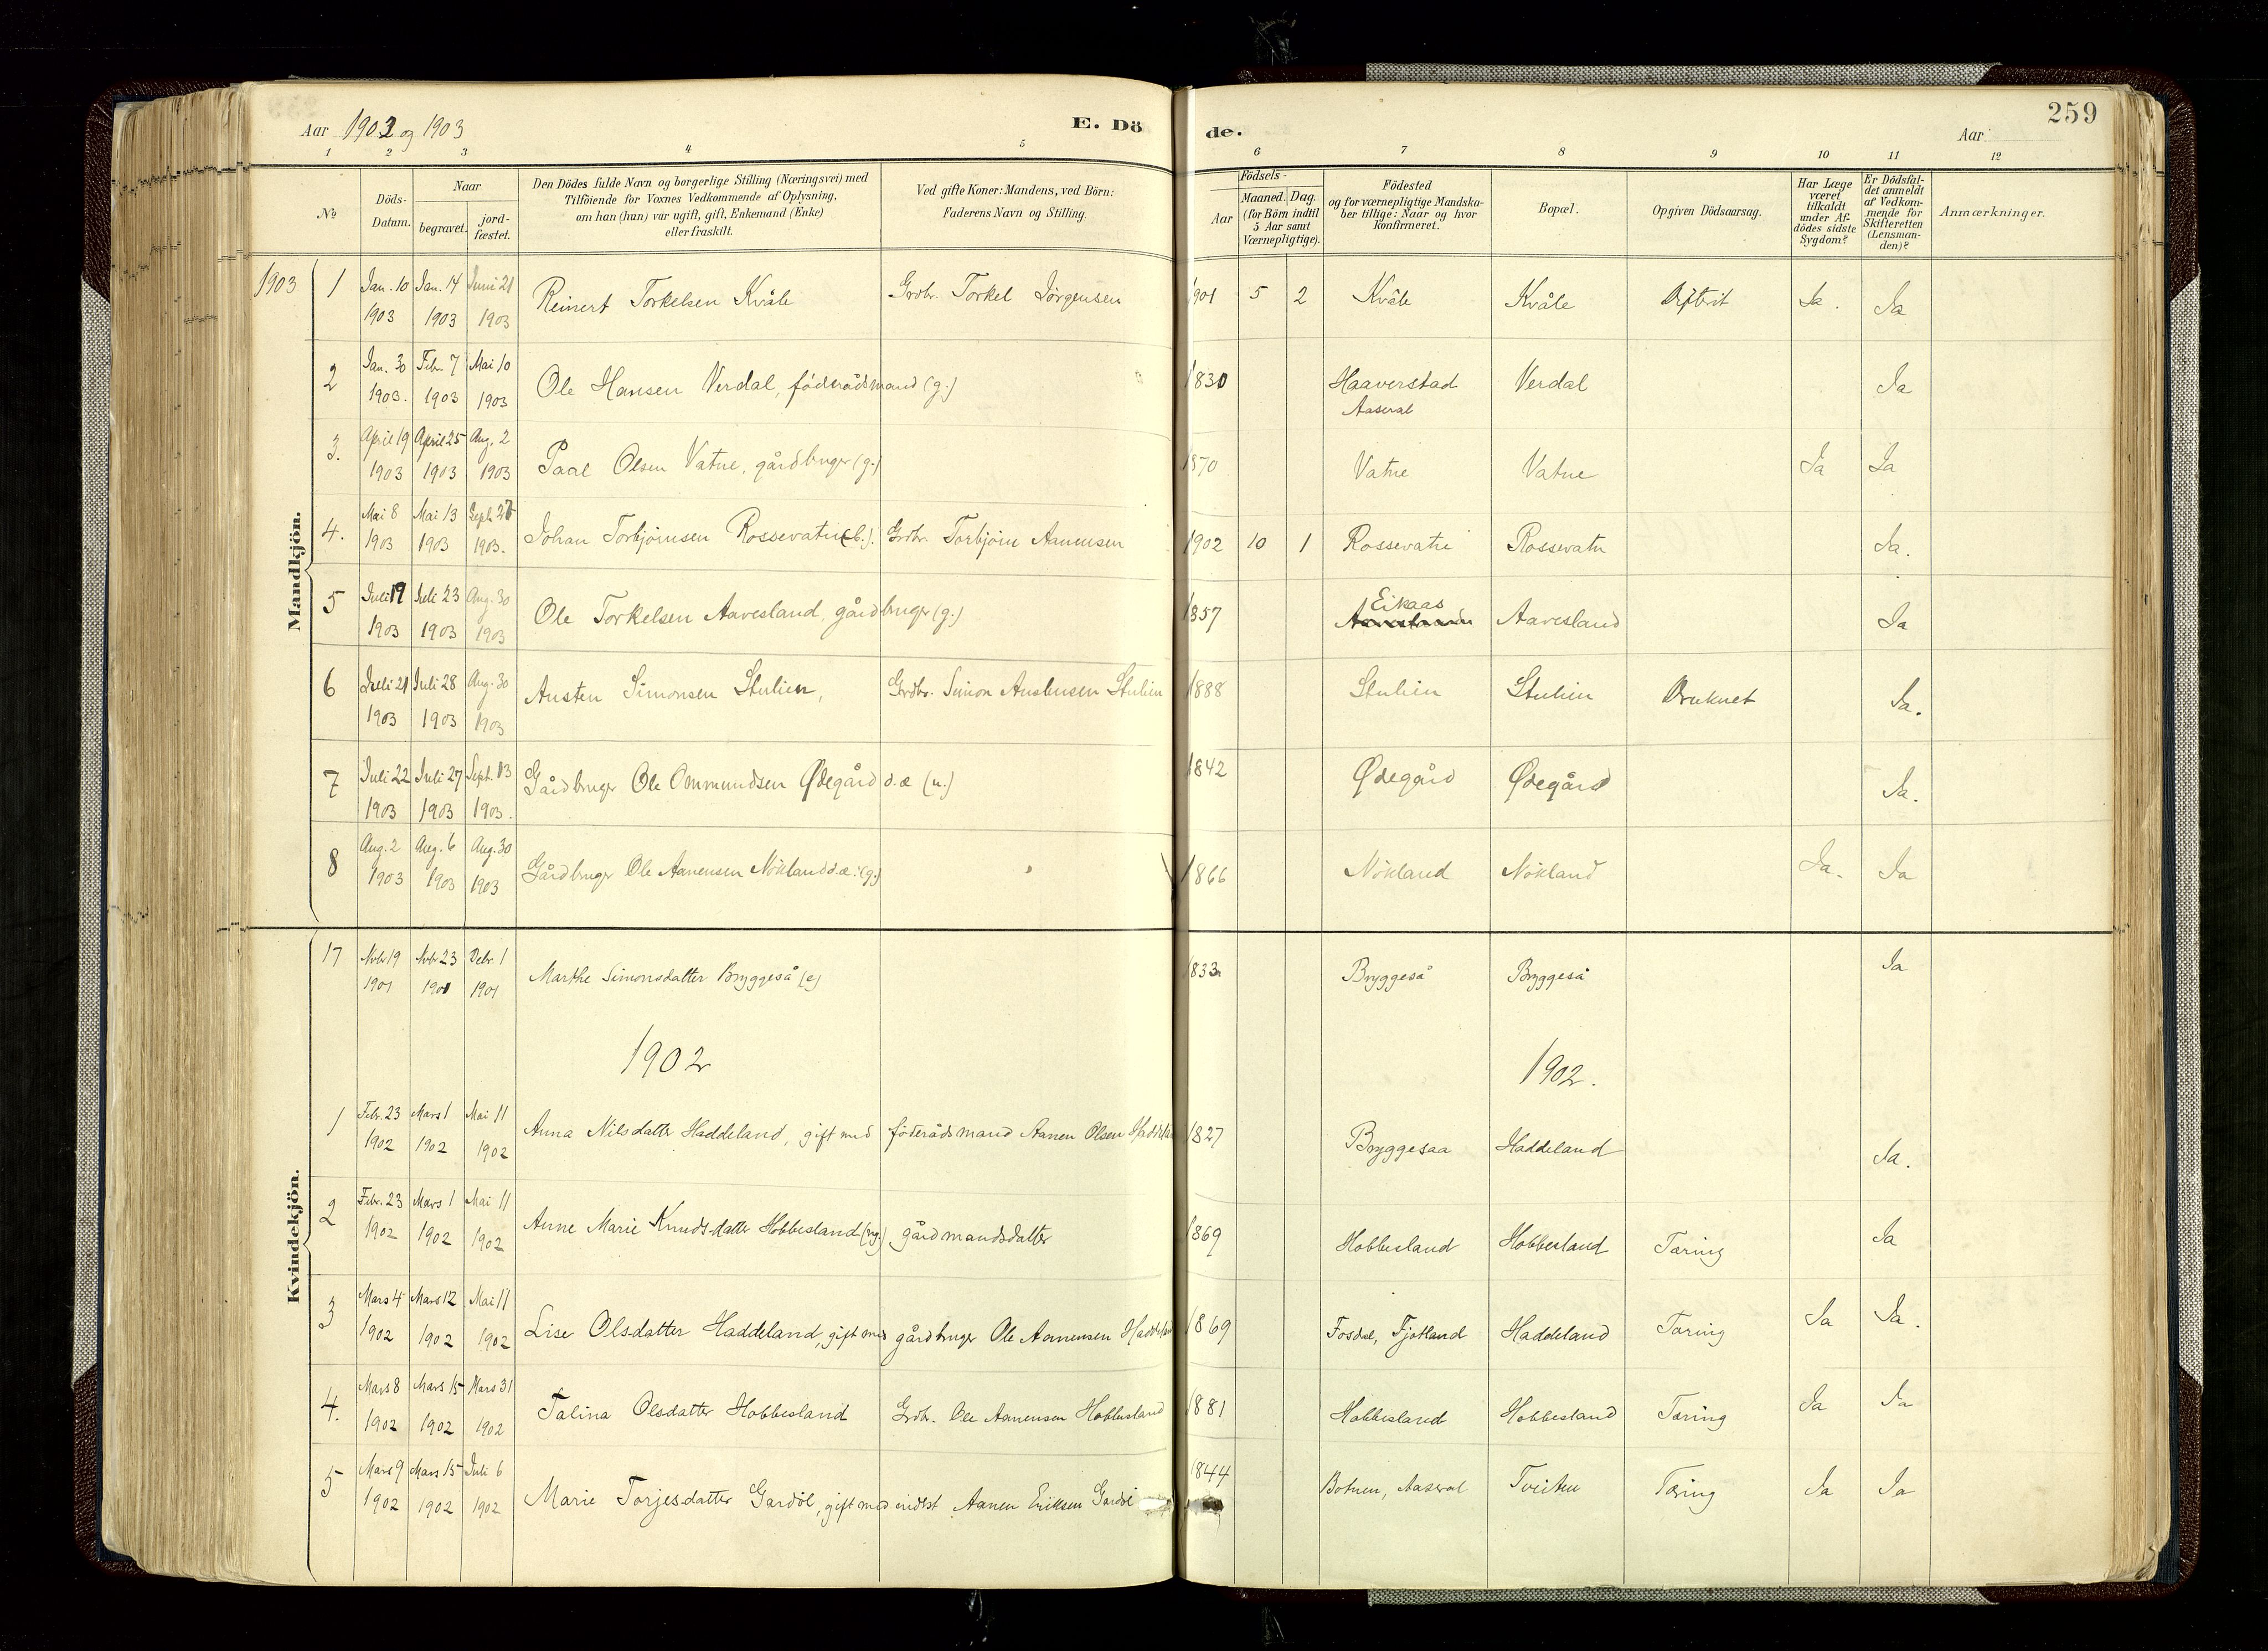 Aar 1902 og 1903 E. Döde. Aar 259
1 2 3 4 5 6 7 8 9 10 11 12
No Döds-Datum. Naar begravet. jordfæstet. Den Dödes fulde Navn og borgerlige Stilling (Næringsvei) med Tilföiende for Voxnes Vedkommende af Oplysning, om han (hun) var ugift, gift, Enkemand (Enke) eller fraskilt. Ved gifte Koner: Mandens, ved Börn: Faderens Navn og Stilling. Födsels- Aar Maaned. Dag. (for Börn indtil 5 Aar samt Værnepligtige). Födested og for værnepligtige Mandskaber tillige: Naar og hvor konfirmeret. Bopæl. Opgiven Dödsaarsag. Har Læge været tilkaldt under Afdödes sidste Sygdom? Er Dödsfaldet anmeldt af Vedkommende for Skifteretten (Lensmanden)? Anmærkninger.
Mandkjön.
1903 1 Jan. 10 1903 Jan. 14 1903 Juni 21 1903 Reinert Torkelsen Kvåle Grdbr. Torkel Jörgensen 1901 5 2 Kvåle Kvåle Difterit Ja. Ja
2 Jan. 30 1903. Febr. 7 1903 Mai 10 1903 Ole Hansen Verdal, föderådsmand (g.) 1830 Haaverstad Aaseral Verdal Ja
3. April 19 1903 April 25 1903 Aug. 2 1903 Paal Olsen Vatne, gårdbruger (g.) 1870 Vatne Vatne Ja Ja
4. Mai 8 1903 Mai 13 1903 Sept. 27 1903. Johan Torbjörnsen Rossevatn (b.). Grdbr. Torbjörn Aanensen 1902 10 1 Rossevatn Rossevatn Ja.
5 Juli 19 1903 Juli 23 1903 Aug. 30 1903 Ole Torkelsen Aavesland, gårdbruger (g.) 1857 Eikaas Aavesland Ja
6 Juli 21 1903 Juli 28 1903 Aug. 30 1903 Austen Simonsen Stulien, Grdbr. Simon Austensen Stulien 1888 Stulien Stulien Druknet Ja.
7 Juli 22 1903 Juli 27 1903 Sept. 13 1903. Gårdbruger Ole Ommundsen Ødegård d.æ (u.) 1842 Ødegård Ødegård Ja.
8 Aug. 2 1903 Aug. 6 1903 Aug. 30 1903 Gårdbruger Ole Aanensen Nökland d.æ. (g.) 1866 Nökland Nökland Ja. Ja
Kvindekjön.
17 Novbr 19 1901 Novbr 23 1901 Debr. 1 1901 Marthe Simonsdatter Bryggeså (e) 1833 Bryggeså Bryggeså Ja
1902 1902.
1 Febr. 23 1902 Mars 1 1902 Mai 11 1902 Anna Nilsdatter Haddeland, gift med föderådsmand Aanen Olsen Haddeland 1827 Bryggesaa Haddeland Ja.
2 Febr. 23 1902 Mars 1 1902 Mai 11 1902 Anne Marie Knudsdatter Hobbesland (ug.) gårdmandsdatter 1869 Hobbesland Hobbesland Tæring Ja
3 Mars 4 1902 Mars 12 1902 Mai 11 1902 Lise Olsdatter Haddeland, gift med gårdbruger Ole Aanensen Haddeland 1869 Fosdal, Fjotland Haddeland Tæring Ja Ja.
4. Mars 8 1902 Mars 15 1902 Mars 31 1902 Talina Olsdatter Hobbesland Grdbr. Ole Aanensen Hobbesland 1881 Hobbesland Hobbesland Tæring Ja Ja
5 Mars 9 1902 Mars 15 1902 Juli 6 1902 Marie Torjesdatter Gardöl, gift med indest Aanen Eriksen Gardöl 1844 Botnen, Aaseral Tveiten Tæring Ja Ja